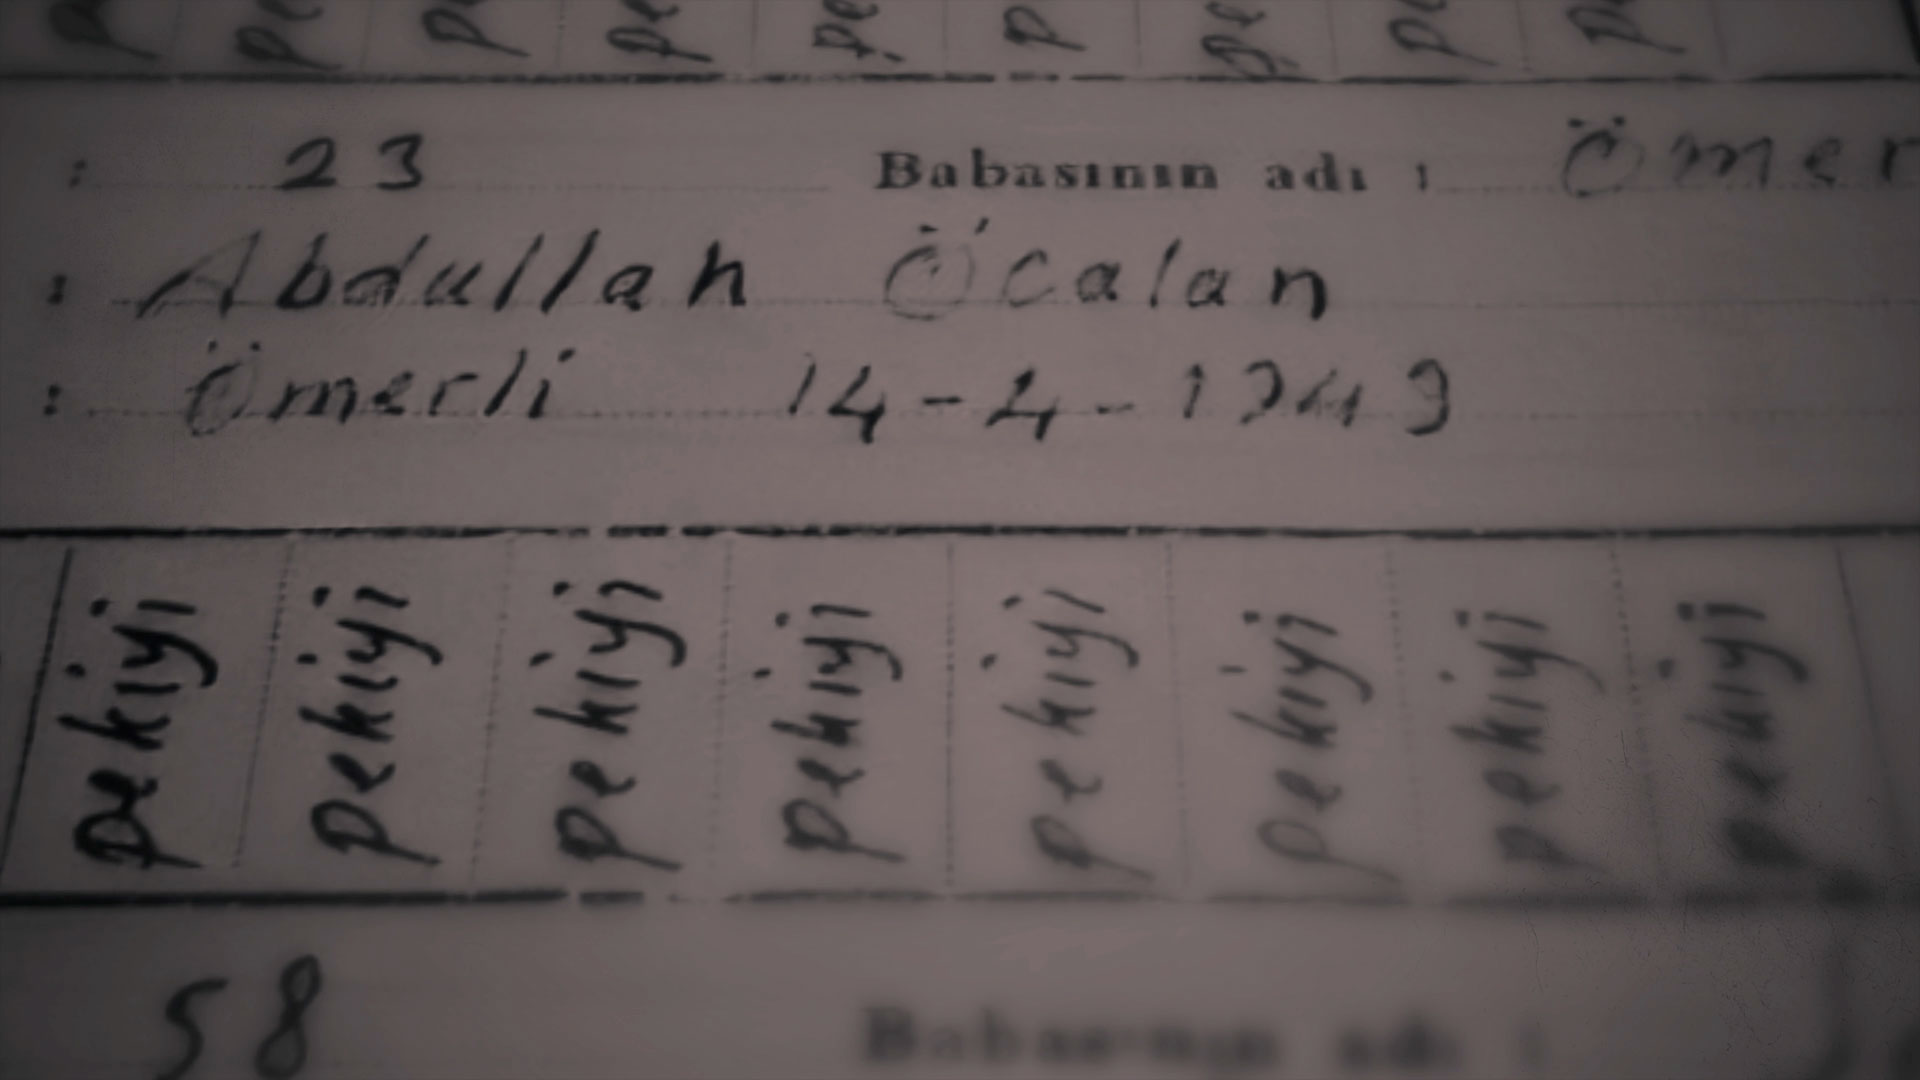 : 23 Babasının adı : Ömer
: Abdullah Öcalan
: Ömerli 14-4-1949
pekiyi pekiyi pekiyi pekiyi pekiyi pekiyi pekiyi pekiyi
58 Babasının adı :